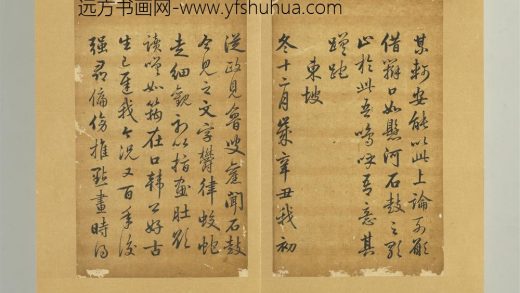 远方书画网-www.yfshuhua.com
某軻安能以此上論列願
借辯口如懸河石鼓之歌
止於此吾嗚呼吾意其
蹉跎
東坡
冬十二月歲辛丑我初
從政見魯叟舊聞石鼓
今見之文字鬱律蛟蛇
走細觀初以指畫肚欲
讀嗟如箝在口韓公好古
生已遲我今況又百年後
強尋偏傍推點畫時得